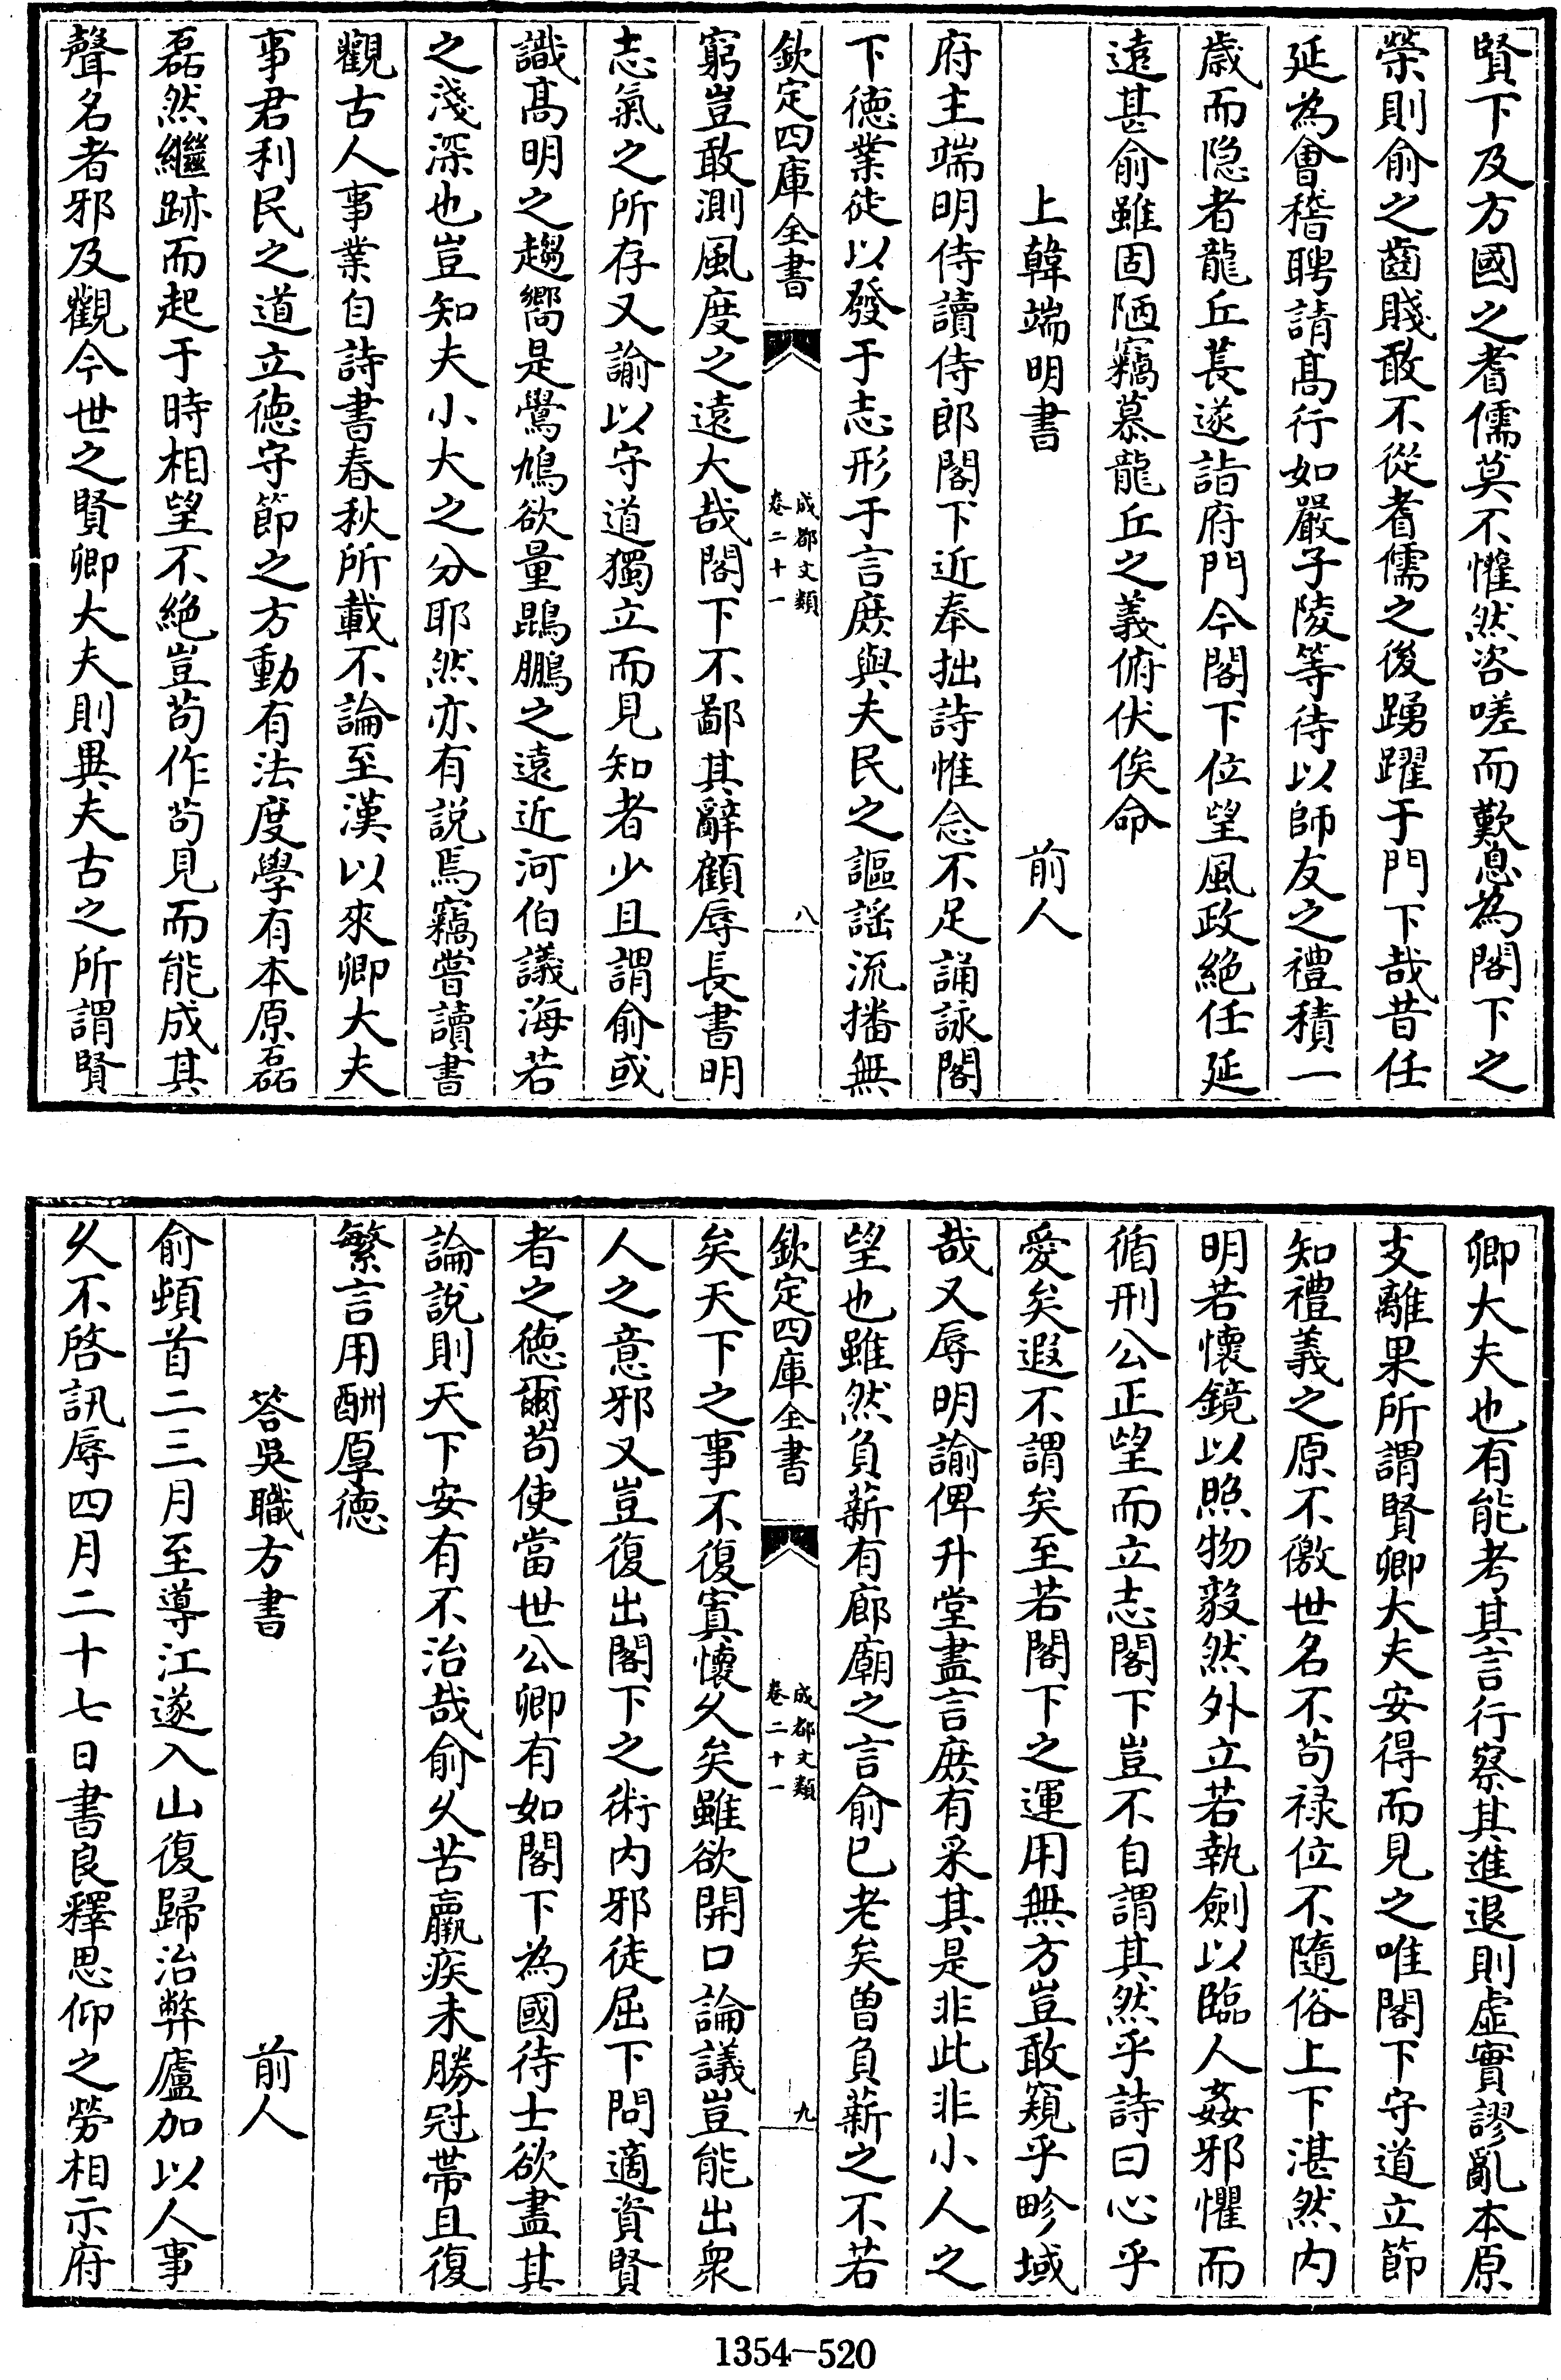 賢下及方國之耆儒莫不懼然咨嗟而歎息為閣下之
榮則俞之齒賤敢不從耆儒之後踴躍于門下哉昔任
延為會稽聘請髙行如嚴子陵等待以師友之禮積一
歲而隐者龍丘萇遂詣府門今閣下位望風政絶任延
遠甚俞雖固陋竊慕龍丘之義俯伏俟命
上韓端明書　　前人
府主端明侍讀侍郎閣下近奉拙詩惟念不足誦詠閣
下德業徒以發于志形于言庶與夫民之謳謡流播無
欽定四庫全書
成都文類
卷二十一
八
窮豈敢測風度之遠大哉閣下不鄙其辭顧辱長書明
志氣之所存又諭以守道獨立而見知者少且謂俞或
識髙明之趨嚮是鷽鳩欲量鵾鵬之遠近河伯議海若
之淺深也豈知夫小大之分耶然亦有説焉竊嘗讀書
觀古人事業自詩書春秋所載不論至漢以來卿大夫
事君利民之道立徳守節之方動有法度學有本原磊
磊然繼跡而起于時相望不絶豈茍作茍見而能成其
聲名者邪及觀今世之賢卿大夫則異夫古之所謂賢
卿大夫也有能考其言行察其進退則虚實謬亂本原
支離果所謂賢卿大夫安得而見之唯閣下守道立節
知禮義之原不徼世名不茍禄位不隨俗上下湛然内
明若懷鏡以照物毅然外立若執劍以臨人姦邪懼而
循刑公正望而立志閣下豈不自謂其然乎詩曰心乎
愛矣遐不謂矣至若閣下之運用無方豈敢窺乎畛域
哉又辱明諭俾升堂盡言庶有采其是非此非小人之
望也雖然負薪有廊廟之言俞已老矣曾負薪之不若
欽定四庫全書
成都文類
卷二十一
九
矣天下之事不復寘懷久矣雖欲開口論議豈能出衆
人之意邪又豈復出閣下之術内邪徒屈下問適資賢
者之徳爾茍使當世公卿有如閣下為國待士欲盡其
論說則天下安有不治哉俞久苦羸疾未勝冠帶且復
繁言用酬厚徳
答吳職方書　　前人
俞頓首二三月至導江遂入山復歸治弊廬加以人事
久不啓訊辱四月二十七日書良釋思仰之勞相示府
1354—520